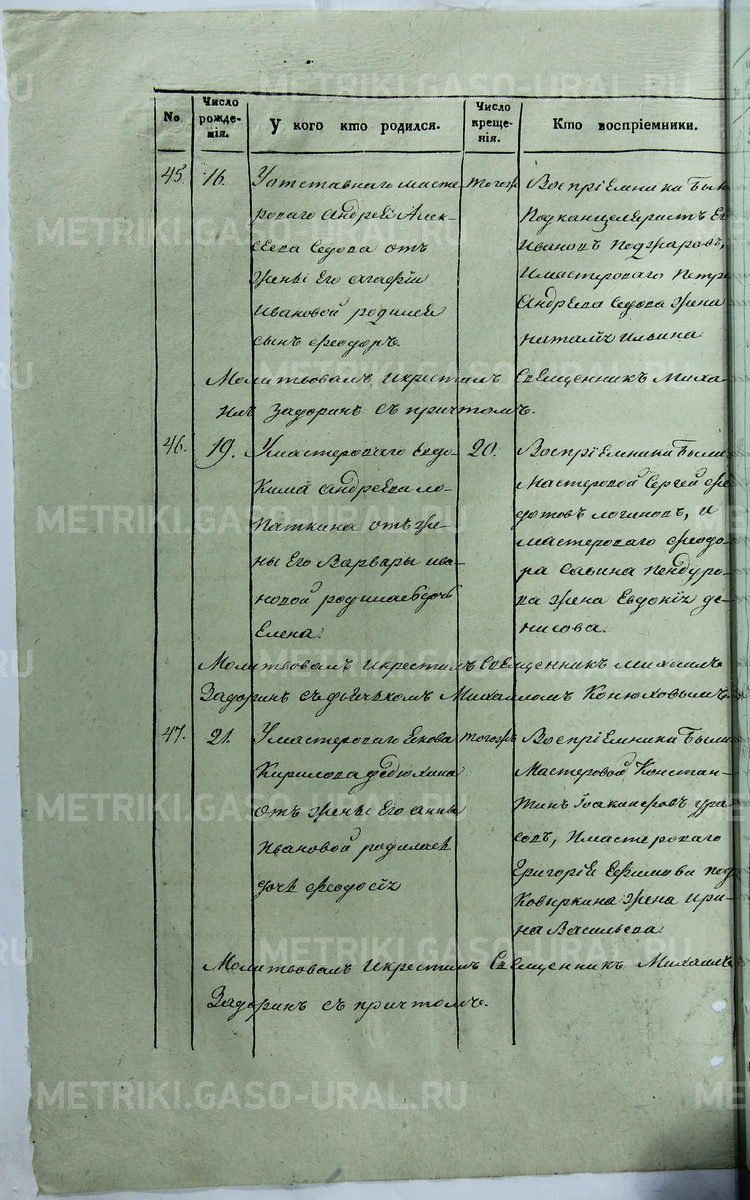 No
Число рожде-нія.
У кого кто родился.
Число креще-нія.
Кто воспріемники.
45.
16.
У отставнаго масте
роваго Андрея Алек-
сеева Седова отъ
жены Его Агафіи
Ивановой родился
сынъ Феодоръ.
тогожъ
Воспріемники были
Подканцеляристъ
Ивановъ Поджаровъ,
И мастероваго Петра
Андреева Седова жена
Наталія Ильина
Молитвовалъ, И крестилъ Священникъ Миха-
илъ Задоринъ Съ причтомъ.
46.
19.
У мастероваго Евдо-
кима Андреева Ло-
паткина отъ же-
ны Его Варвары Ива-
новой родилась дочь
Елена.
20.
Воспріемники были
Мастеровой Сергей Фе-
дотовъ Логиновъ, И
мастероваго Феодо-
ра Савина
жена Евдокія Де-
нисова.
Молитвовалъ И крестилъ Священникъ Михаилъ
Задоринъ Съ дьячкомъ Михаиломъ Конюховымъ.
47.
21.
У мастероваго Якова
Кирилова Федюхина
отъ жены Его Анны
Ивановой родилась
дочь Феодосія
тогожъ
Воспріемники были
Мастеровой Констан-
тинъ Іоакимовъ
И мастероваго
Григорія Ефимова под
ковыркина жена Ири-
на Васильева
Молитвовалъ И крестилъ Священникъ Михаилъ
Задоринъ Съ причтомъ.
METRIKI.GASO-URAL.RU